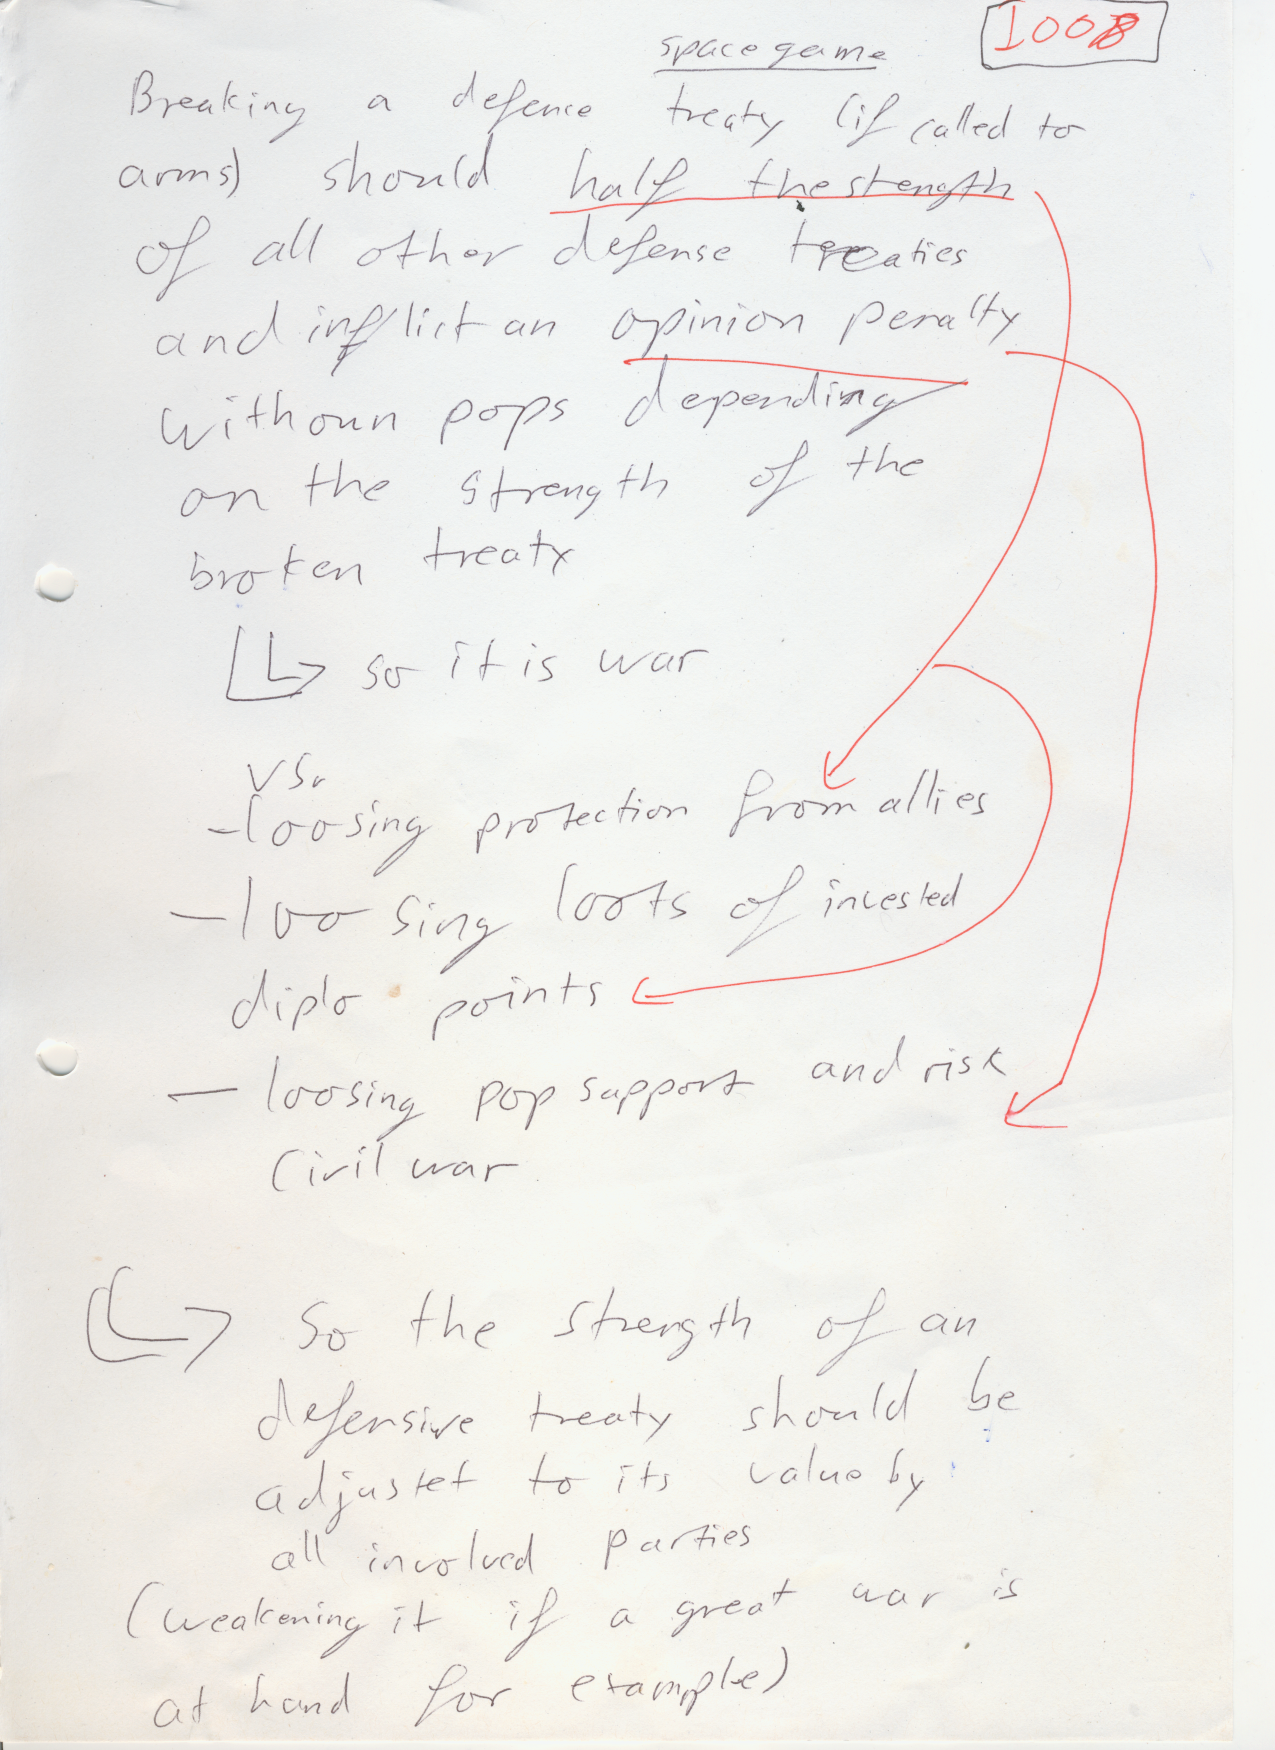 space game
1008
Breaking a defence treaty (if called to
arms) should half the stength
of all other defense treaties
and inflict an opinion penalty
withoun pops depending
on the strength of the
broken treaty
so it is war
vs.
- loosing protection from allies
- loosing loots of invested
diplo points
- loosing pop support and risk
civil war
so the strength of an
defensive treaty should be
adjustet to its value by
all involved parties
(weakening it if a great war is
at hand for example)